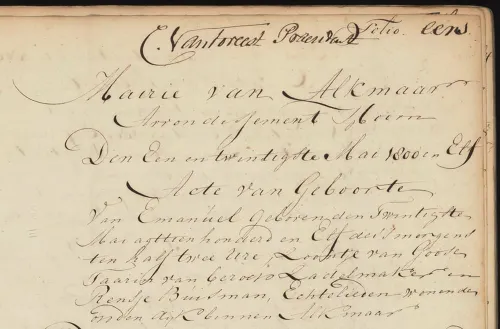 C. Vantoreest President Folio. eers
Mairie van Alkmaar
Arrondessement Hoorn
Den Een en twintigste Mai 1800 en Elf
Acte van Geboorte
Van Emanüel geboren den Twintigste
Mai agttien honderd en Elf des S'morgens
ten half twee Ure, Loontje van Goode
van beroep Ladelmaker en
Rensje Buisman, Echtelieden wonende
op den dyk binnen Alkmaar